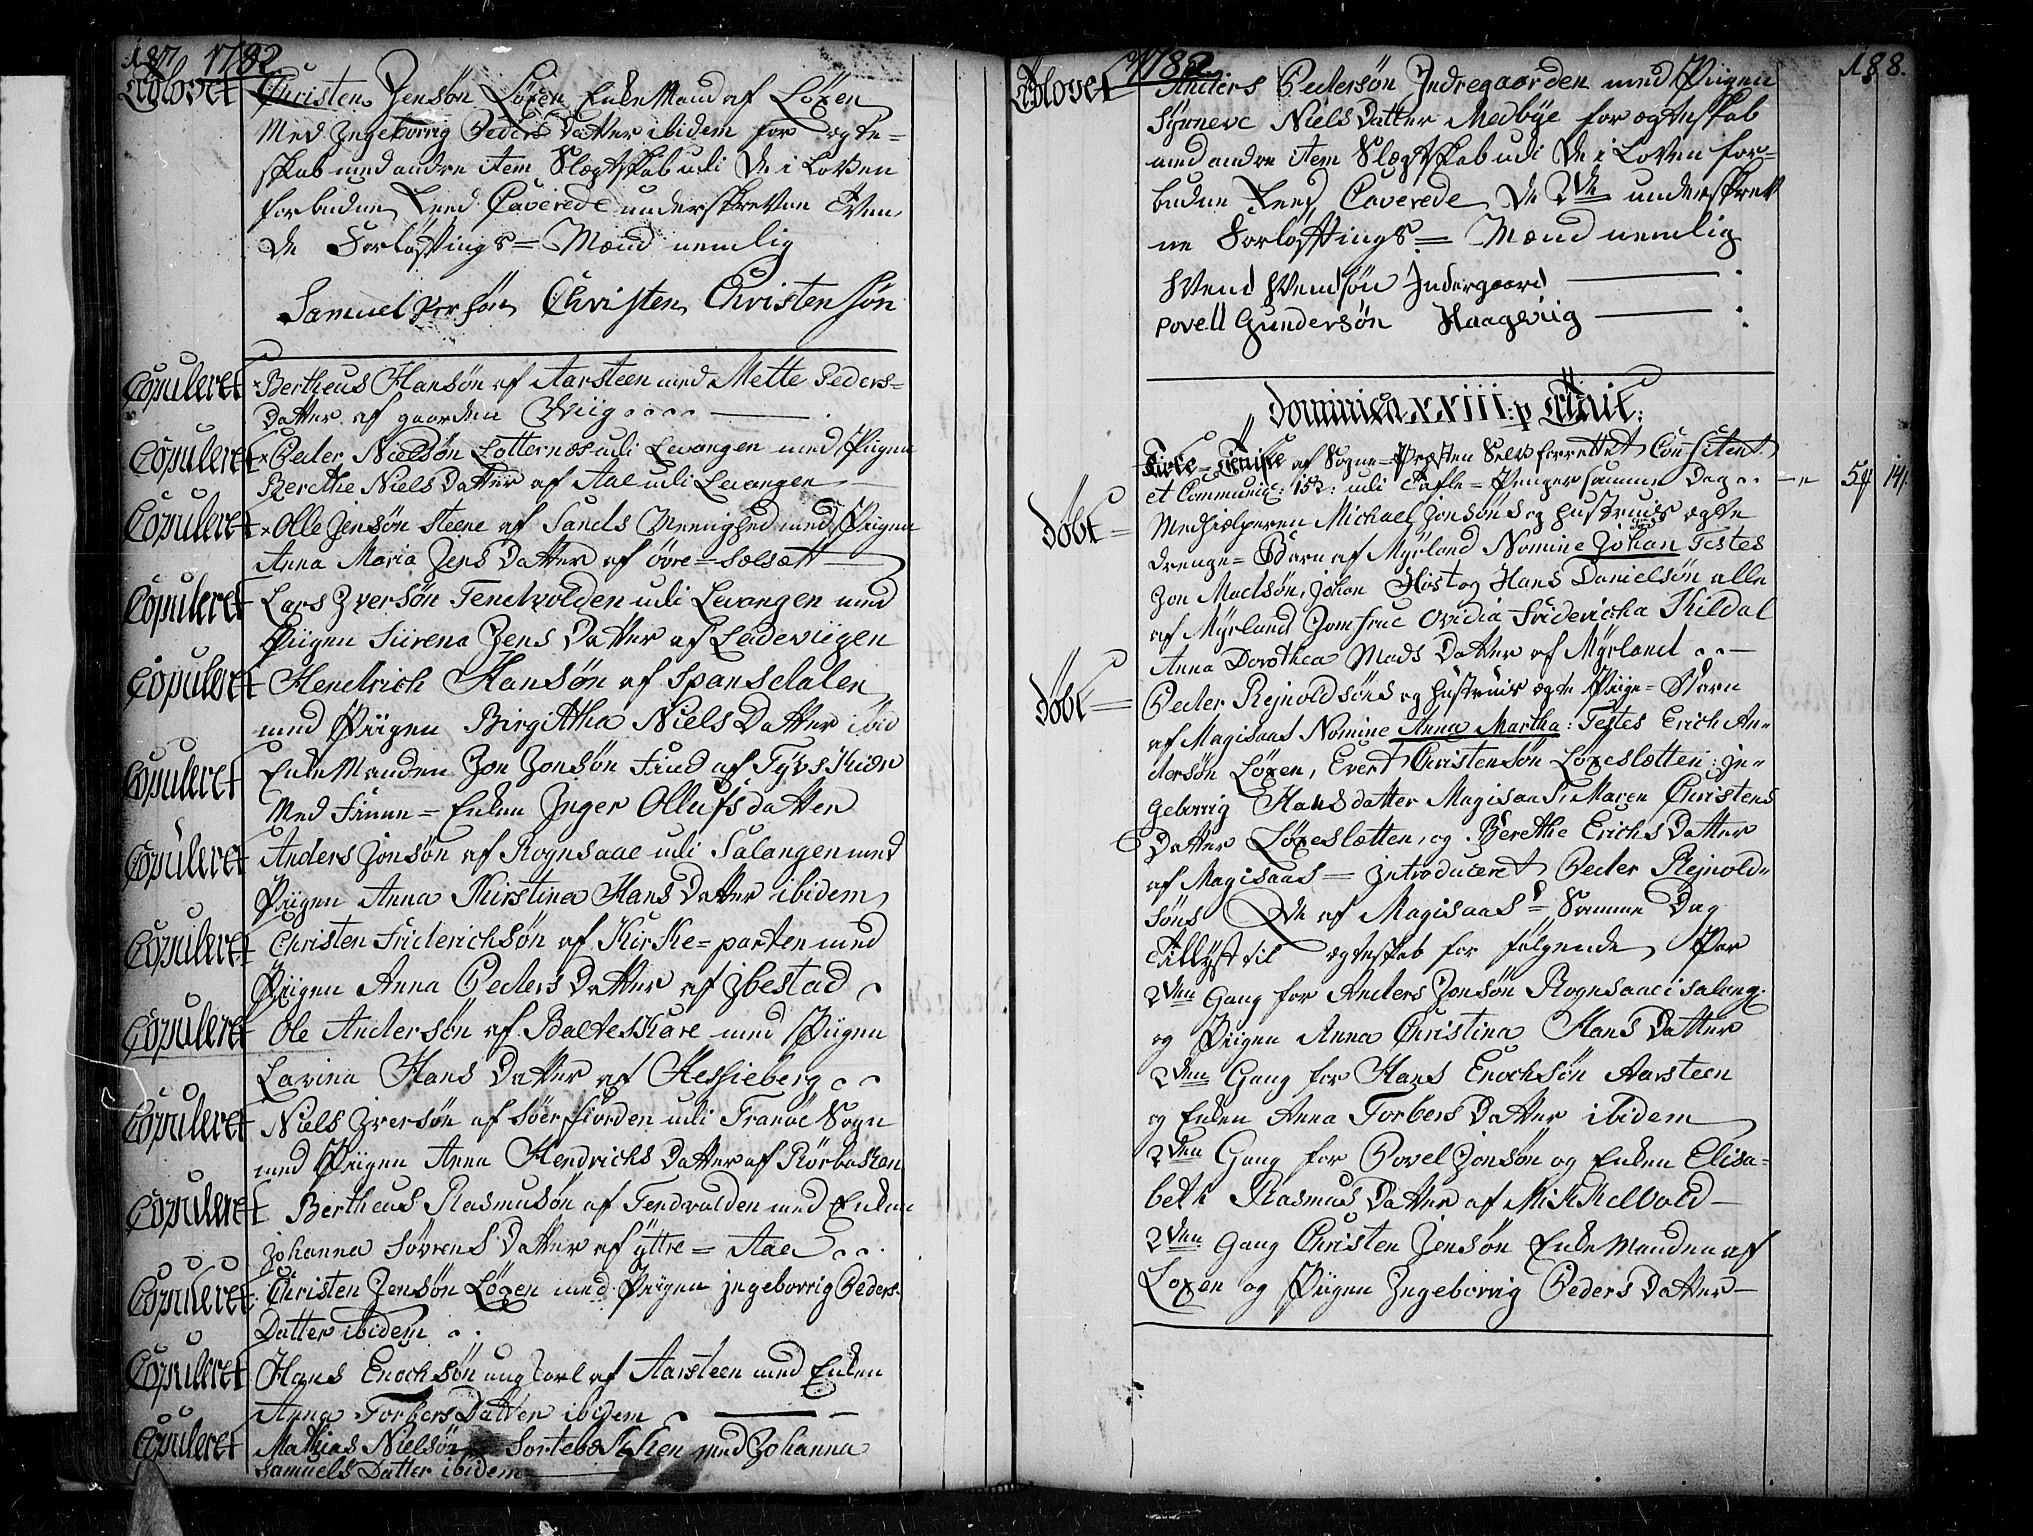 187 1782
Tiilovet Christen Jensøn Løxen EnkeMand af Løxen
Med Ingeborrig Peders Datter ibidem for ægte=
skab med andre item Slægtskab udi De i Loven
forbudne Leed Caverede underskrevne Tven
De Forloftnings= Mænd nemlig
Samuel Persøn Christen Christensøn
Copuleret Bertheus Hansøn af Aarsteen med Mette Peders=
Datter af gaarden Wiig
Copuleret Peder Nielsøn Lotternæs udi Levangen med Piigen
Berethe Niels Datter af Aae udi Levangen
Copuleret Olle Jensøn Steene af Sands Menighed med Piigen
Anna Maria Jens Datter af øvre=Sælsætt
Copuleret Lars Iversøn Tendvolden udi Levangen med
Piigen Siirena Jens Datter af Ladeviigen
Copuleret Hendrich Hansøn af Spansdalen
med Piigen Birgitha Niels Datter ibid
Copuleret EnkeManden Jon Jonsøn Find af
Med Finne=Enken Inger Ollufsdatter
Copuleret Anders Jonsøn af Rognsaae udi Salangen med
Piigen Anna Kirstina Hans Datter ibidem
Copuleret Christen Friderichsøn af Kirke=parten med
Piigen Anna Peders Datter af Ibestad
Copuleret Ole Andersøn af Baltesskare med Piigen
Lavina Hans Datter af Hessieberg
Copuleret Niels Iversøn af Søerfiorden udi Tranøe Sogn
med Piigen Anna Hendrichs Datter af Rørbakken
Copuleret Bertheus Rasmusøn af Tendvalden med Enken
Johanna Sørrens Datter af yttre=Aae
Copuleret Christen Jensøn Løxen med Piigen Ingeborrig Peders
Datter ibidem
Copuleret Hans Enochsøn ungkarl af Aarsteen med Enken
Anna Torbers Datter ibidem
Copuleret Mathias Nielsøn Sortebækken med Johanna
Samuels Datter ibidem
1782 188.
Tiilovet Anders Pedersøn Indregaarden med Piigen
Synneve Niels Datter Medbye for ægteskab
med andre item Slægtskab udi De i Loven for=
budne Leed Caverede De 2de underskrev
ne Forløftnings= Mænd nemlig
Svend Svendsøn Indergaard
Povell Gundersøn Haagwiig
Dominica XXIII: p Trinit:
Tieneste af Sogne=Præsten Selv forrettet Confitent
et Communic: 152: udi Tafle=Penger samme Dag 54 14
Døbt Medhielperen Michael Jonsøns og hustruis ægte
Drenge=Barn af Myrland Nomine Johan Testes
Jon Madsøn, Johan Høst og Hans Danielsøn alle
af Myrland Jomfrue Ovidia Friderica Kildal
Anna Dorothea Mads Datter af Myrland
Døbt Peder Rejnoldsøns og hustruis ægte Piige=Barn
af Magisaas Nomine Anna Martha: Testes Erich An=
dersøn Løxen, Evert Christensøn Løxeslætten: In=
geborrig Hansdatter Magisaas, Maren Christens
Datter Løxeslætten, og Berethe Erichs Datter
af Magisaas= Introduceret Peder Rejnold=
søns De af Magisaas= Samme Dag
Tillyst til ægteskab for følgende Par
2den Gang for Anders Jonsøn Rognsaae i Salang:
og Piigen Anna Christina Hans Datter
2den Gang for Hans Enochsøn Aarsteen
og Enken Anna Torbers Datter ibidem
2den Gang for Povel Jonsøn og Enken Elisa=
beth Rasmus Datter af Mikkelbold
2den Gang Christen Jensøn Enke Manden af
Løxen og Piigen Ingeborrig Peders Datter